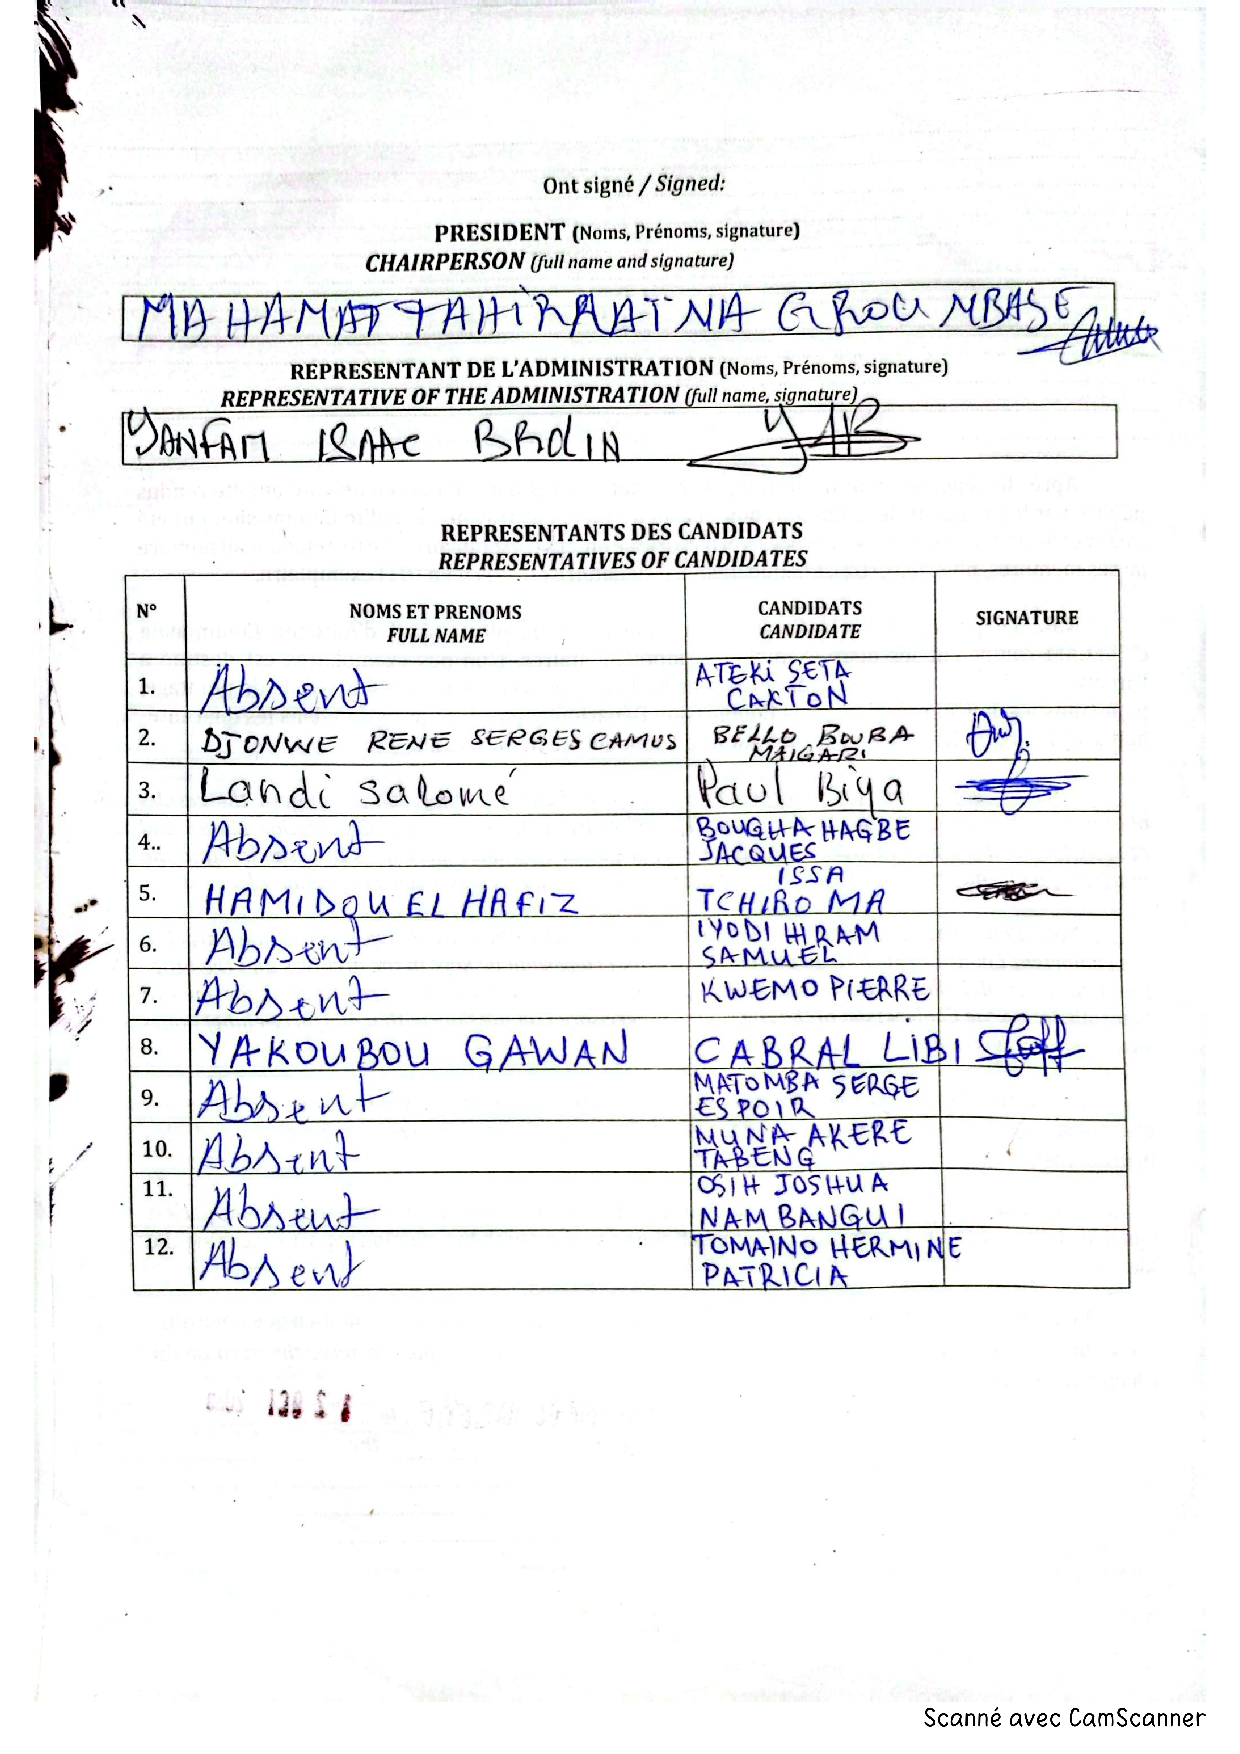 Ont signé / Signed:
PRESIDENT (Noms, Prénoms, signature)
CHAIRPERSON (full name and signature)
MAHAMAT TAHIR AATNA GROUMBASE
REPRESENTANT DE L'ADMINISTRATION (Noms, Prénoms, signature)
REPRESENTATIVE OF THE ADMINISTRATION (full name, signature)
YANFAM ISAAC BROLIN YIB
REPRESENTANTS DES CANDIDATS
REPRESENTATIVES OF CANDIDATES
N° NOMS ET PRENOMS CANDIDATS SIGNATURE
FULL NAME CANDIDATE
1. Absent ATEKI SETA
CAXTON
2. DJONWE RENE SERGES CAMUS BELLO BOUBA
MAIGARI
3. Landi Salomé Paul Biya
4.. Absent BOUGHA HAGBE
JACQUES
5. HAMIDOU EL HAFIZ ISSA
TCHIROMA
6. Absent IYODI HIRAM
SAMUEL
7. Absent KWEMO PIERRE
8. YAKOUBOU GAWAN CABRAL LIBI
9. Absent MATOMBA SERGE
ESPOIR
10. Absent MUNA AKERE
TABENG
11. Absent OSIH JOSHUA
NAMBANGUI
12. Absent TOMAINO HERMINE
PATRICIA
Scanné avec CamScanner